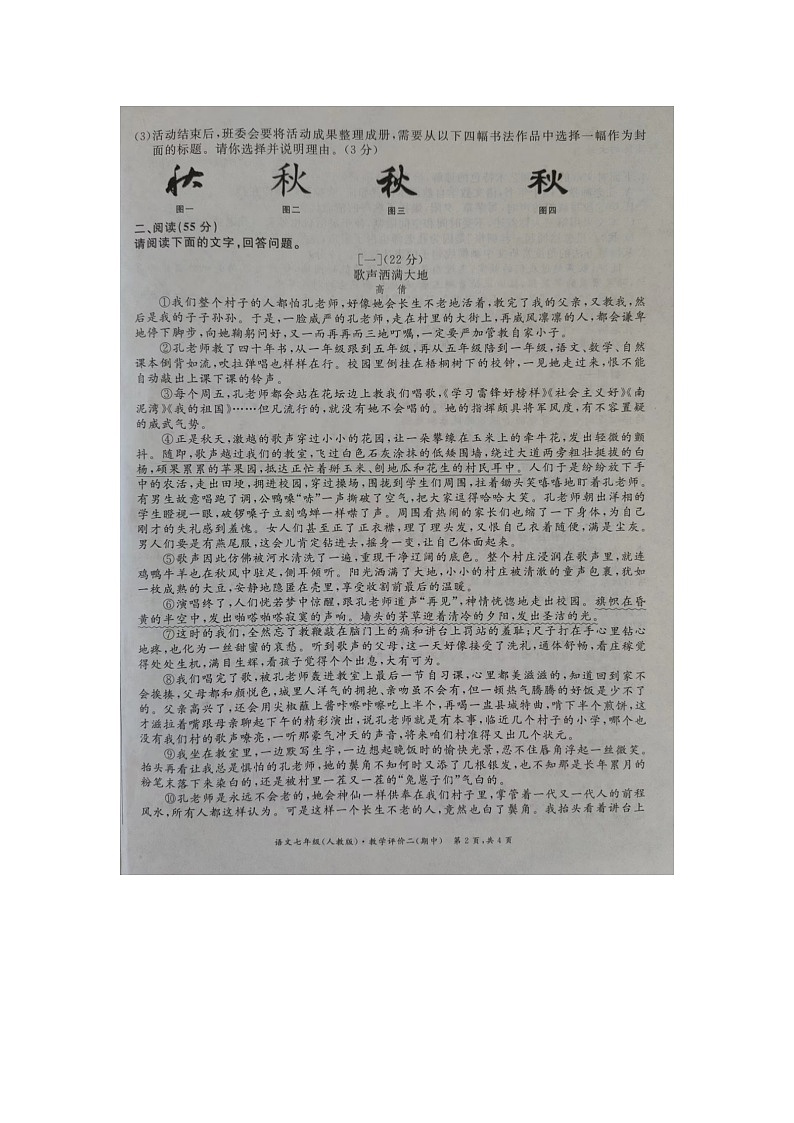 (3)活动结束后,班委会要将活动成果整理成册,需要从以下四幅书法作品中选择一幅作为封
面的标题。请你选择并说明理由。(3分)
秋 秋 秋 秋
图一 图二 图三 图四
二、阅读(55分)
请阅读下面的文字,回答问题。
[一](22分)
歌声洒满大地
高 倩
①我们整个村子的人都怕孔老师,好像她会长生不老地活着,教完了我的父亲,又教我,然
后是我的子子孙孙。于是,一脸威严的孔老师,走在村里的大街上,再威风凛凛的人,都会谦卑
地停下脚步,向她鞠躬问好,又一而再再而三地叮嘱,一定要严加管教自家小子。
②孔老师教了四十年书,从一年级跟到五年级,再从五年级陪到一年级,语文、数学、自然
课本倒背如流,吹拉弹唱也样样在行。校园里倒挂在梧桐树下的校钟,一见她走过来,恨不能
自动敲出上课下课的铃声。
③每个周五,孔老师都会站在花坛边上教我们唱歌,《学习雷锋好榜样》《社会主义好》《南
泥湾》《我的祖国》……但凡流行的,就没有她不会唱的。她的指挥颇具将军风度,有不容置疑
的威武气势。
④正是秋天,激越的歌声穿过小小的花园,让一朵攀缘在玉米上的牵牛花,发出轻微的颤
抖。随即,歌声越过我们的教室,飞过白色石灰涂抹的低矮围墙,绕过大道两旁粗壮挺拔的白
杨,硕果累累的苹果园,抵达正忙着掰玉米、刨地瓜和花生的村民耳中。人们于是纷纷放下手
中的农活,走出田埂,拥进校园,穿过操场,围拢到学生们周围,拄着锄头笑嘻嘻地盯着孔老师。
有男生故意唱跑了调,公鸭嗓“哧”一声撕破了空气,把大家逗得哈哈大笑。孔老师朝出洋相的
学生瞪视一眼,破锣嗓子立刻鸣蝉一样噤了声。周围看热闹的家长们也缩了一下身体,为自己
刚才的失礼感到羞愧。女人们甚至正了正衣襟,理了理头发,又恨自己衣着随便,满是尘灰。
男人们要是有燕尾服,这会儿肯定钻进去,摇身一变,让自己体面起来。
⑤歌声因此仿佛被河水清洗了一遍,重现干净辽阔的底色。整个村庄浸润在歌声里,就连
鸡鸭牛羊也在秋风中驻足,侧耳倾听。阳光洒满了大地,小小的村庄被清澈的童声包裹,犹如
一枚成熟的大豆,安静地隐匿在壳里,享受收割前最后的温暖。
⑥演唱终了,人们恍若梦中惊醒,跟孔老师道声“再见”,神情恍惚地走出校园。旗帜在昏
黄的半空中,发出啪嗒啪嗒寂寞的声响。墙头的茅草迎着清冷的夕阳,发出圣洁的光。
⑦这时的我们,全然忘了教鞭敲在脑门上的痛和讲台上罚站的羞耻;尺子打在手心里钻心
地疼,也化为一丝甜蜜的哀愁。听到歌声的父母,这一天好像接受了洗礼,通体舒畅,看庄稼觉
得处处生机,满目生辉,看孩子觉得个个出息,大有可为。
⑧我们唱完了歌,被孔老师轰进教室上最后一节自习课,心里都美滋滋的,知道回到家不
会挨揍,父母都和颜悦色,城里人洋气的拥抱、亲吻虽不会有,但一顿热气腾腾的好饭是少不了
的。父亲高兴了,还会用尖椒蘸上酱咔嚓咔嚓吃上半个,再喝一盅县城特曲,啃下半个煎饼,这
才滋拉着嘴跟母亲聊起下午的精彩演出,说孔老师就是有本事,临近几个村子的小学,哪个也
没有我们村的歌声嘹亮,一听那豪气冲天的声音,将来咱们村准得又出几个状元。
⑨我坐在教室里,一边默写生字,一边想起晚饭时的愉快光景,忍不住唇角浮起一丝微笑。
抬头再看让我总是惧怕的孔老师,她的鬓角不知何时又添了几根银发,也不知那是长年累月的
粉笔末落下来染白的,还是被村里一茬又一茬的“兔崽子们”气白的。
⑩孔老师是永远不会老的,她会神仙一样供奉在我们村子里,掌管着一代又一代人的前程
风水,所有人都这样认为。可是这样一个长生不老的人,竟然也白了鬓角。我抬头看着讲台上
语文七年级(人教版)·教学评价二(期中) 第2页,共4页